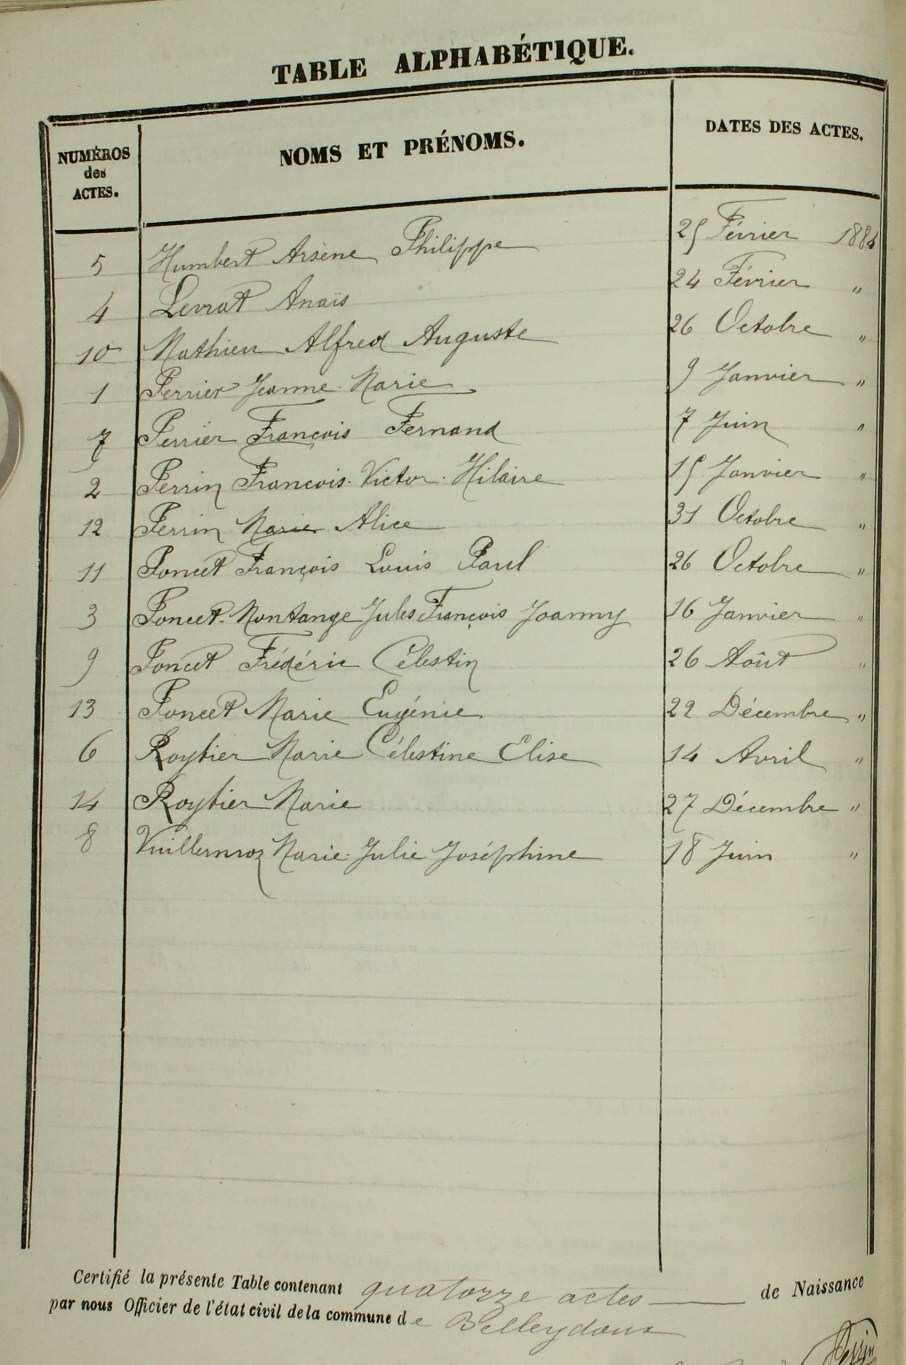 TABLE ALPHABÉTIQUE.
NUMÉROS des ACTES. NOMS ET PRÉNOMS. DATES DES ACTES.
5 Humbert Arsène Philippe 25 Février 1884
4 Levrat Anaïs 24 Février "
10 Mathieu Alfred Auguste 26 Octobre "
1 Perrier Jeanne Marie 9 Janvier "
7 Perrier François Fernand 7 Juin "
2 Perrin François Victor Hilaire 15 Janvier "
12 Perrin Marie Alice 31 Octobre "
11 Poncet François Louis Paul 26 Octobre "
3 Poncet-Montange Jules François Joanny 16 Janvier "
9 Poncet Frédéric Célestin 26 Août "
13 Poncet Marie Eugénie 22 Décembre "
6 Roybier Marie Célestine Elise 14 Avril "
14 Roybier Marie 27 Décembre "
8 Vuillermoz Marie Julie Joséphine 18 Juin "
Certifié la présente Table contenant quatorze actes de Naissance
par nous Officier de l'état civil de la commune de Belleydoux
Perrin